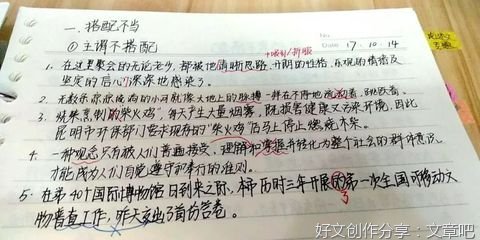 一. 搭配不当
No
①主谓不搭配
Date 17·10·14
+吸引/折服
1. 在这里聚会的无论老少, 都被他清晰的思路、开朗的性格、乐观的情绪及
坚定的信心深深地感染了。
2. 无数条潺潺流淌的小河就像大地上的脉搏一样在不停地流动着、跳跃着。
3. 烧柴禽制的"柴火鸡", 每天产生大量烟雾, 既损害健康又污染环境, 因此
昆明市环保部门要求现有的"柴火鸡"店马上停止燃烧木柴。
4. 一种观念只有被人们普遍接受、理解和掌握并转化为整个社会的群体意识,
才能成为人们自觉遵守和奉行的准则。
5. 在第40个国际博物馆日到来之际, 本市历时三年开展的第一次全国可移动文
了
物普查工作, 昨天交出了首份答卷。
好文创作分享:文章吧